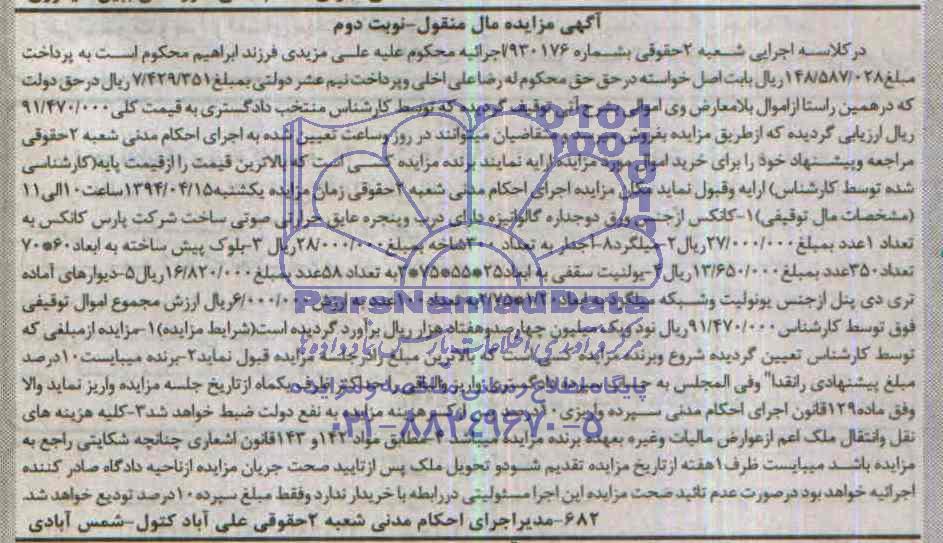 آگهی مزایده مال منقول-نوبت دوم
درکلاسه اجرایی شعبه ۲حقوقی بشماره ۹۳۰۱۷۶/اجرائیه محکوم علیه علی مزیدی فرزند ابراهیم محکوم است به پرداخت
مبلغ۱۴۸/۵۸۷/۰۲۸ریال بابت اصل خواسته در حق حق محکوم له رضاعلی اخلی وپرداخت نیم عشر دولتی بمبلغ۷/۴۲۹/۳۵۱ریال در حق دولت
که در همین راستا ازاموال بلامعارض وی اموالی بشرح آتی توقیف گردیده که توسط کارشناس منتخب دادگستری به قیمت کلی ۹۱/۴۷۰/۰۰۰
ریال ارزیابی گردیده که ازطریق مزایده بفروش میرسد متقاضیان میتوانند در روز وساعت تعیین شده به اجرای احکام مدنی شعبه ۲حقوقی
مراجعه وپیشنهاد خود را برای خرید اموال مورد مزایده ارایه نمایند برنده مزایده کسی است که بالاترین قیمت را ازقیمت پایه(کارشناسی
شده توسط کارشناس) ارایه وقبول نماید مکان مزایده اجرای احکام مدنی شعبه ۲حقوقی زمان مزایده یکشنبه۱۳۹۴/۰۴/۱۵ساعت۱۰الی۱۱
(مشخصات مال توقیفی)۱-کانکس ازجنس ورق دوجداره گالوانیزه دارای درب وپنجره عایق حرارتی صوتی ساخت شرکت پارس کانکس به
تعداد ۱عدد بمبلغ۲۷/۰۰۰/۰۰۰ریال۲-میلگرد۸-آجدار به تعداد ۳۰۰شاخه بمبلغ۲۸/۰۰۰/۰۰۰ریال ۳-بلوک پیش ساخته به ابعاد۶۰*۷۰
تعداد۳۵۰عدد بمبلغ۱۳/۶۵۰/۰۰۰ریال۴-یولنیت سقفی به ابعاد۲۵*۵۵*۷۵*۲به تعداد ۵۸عدد بمبلغ۱۶/۸۲۰/۰۰۰ریال۵-دیوارهای آماده
تری دی پنل ازجنس یونولیت وشبکه میلگرد به ابعاد۱/۲۰*۲/۷۵به تعداد۱۰۰عدد به ارزش۶/۰۰۰/۰۰۰ریال ارزش مجموع اموال توقیفی
فوق توسط کارشناس ۹۱/۴۷۰/۰۰۰ریال نود ویک میلیون چهارصدوهفتاد هزار ریال برآورد گردیده است(شرایط مزایده)۱-مزایده ازمبلغی که
توسط کارشناس تعیین گردیده شروع وبرنده مزایده کسی است که بالاترین مبلغ رادرجلسه مزایده قبول نماید۲-برنده میبایست۱۰درصد
مبلغ پیشنهادی رانقدا" وفی المجلس به حساب سپرده دادگستری واریز والباقی را حداکثر ظرف یکماه ازتاریخ جلسه مزایده واریز نماید والا
وفق ماده۱۲۹قانون اجرای احکام مدنی سپرده واریزی ۱۰درصد پس ازکسر هزینه مزایده به نفع دولت ضبط خواهد شد۳-کلیه هزینه های
نقل وانتقال ملک اعم ازعوارض مالیات وغیره بعهده برنده مزایده میباشد ۴-مطابق مواد ۱۴۲و ۱۴۳قانون اشعاری چنانچه شکایتی راجع به
مزایده باشد میبایست ظرف۱هفته ازتاریخ مزایده تقدیم شودو تحویل ملک پس ازتایید صحت جریان مزایده ازناحیه دادگاه صادر کننده
اجرائیه خواهد بود درصورت عدم تائید صحت مزایده این اجرا مسئولیتی دررابطه با خریدار ندارد وفقط مبلغ سپرده۱۰درصد تودیع خواهد شد.
۶۸۲-مدیراجرای احکام مدنی شعبه ۲حقوقی علی آباد کتول-شمس آبادی
ParsNamadData
مرکز فرآوری اطلاعات پارس نماد داده ها
پایگاه اطلاع رسانی مناقصه و مزایده
۰۲۱-۸۸۳۴۹۶۷۰-۵